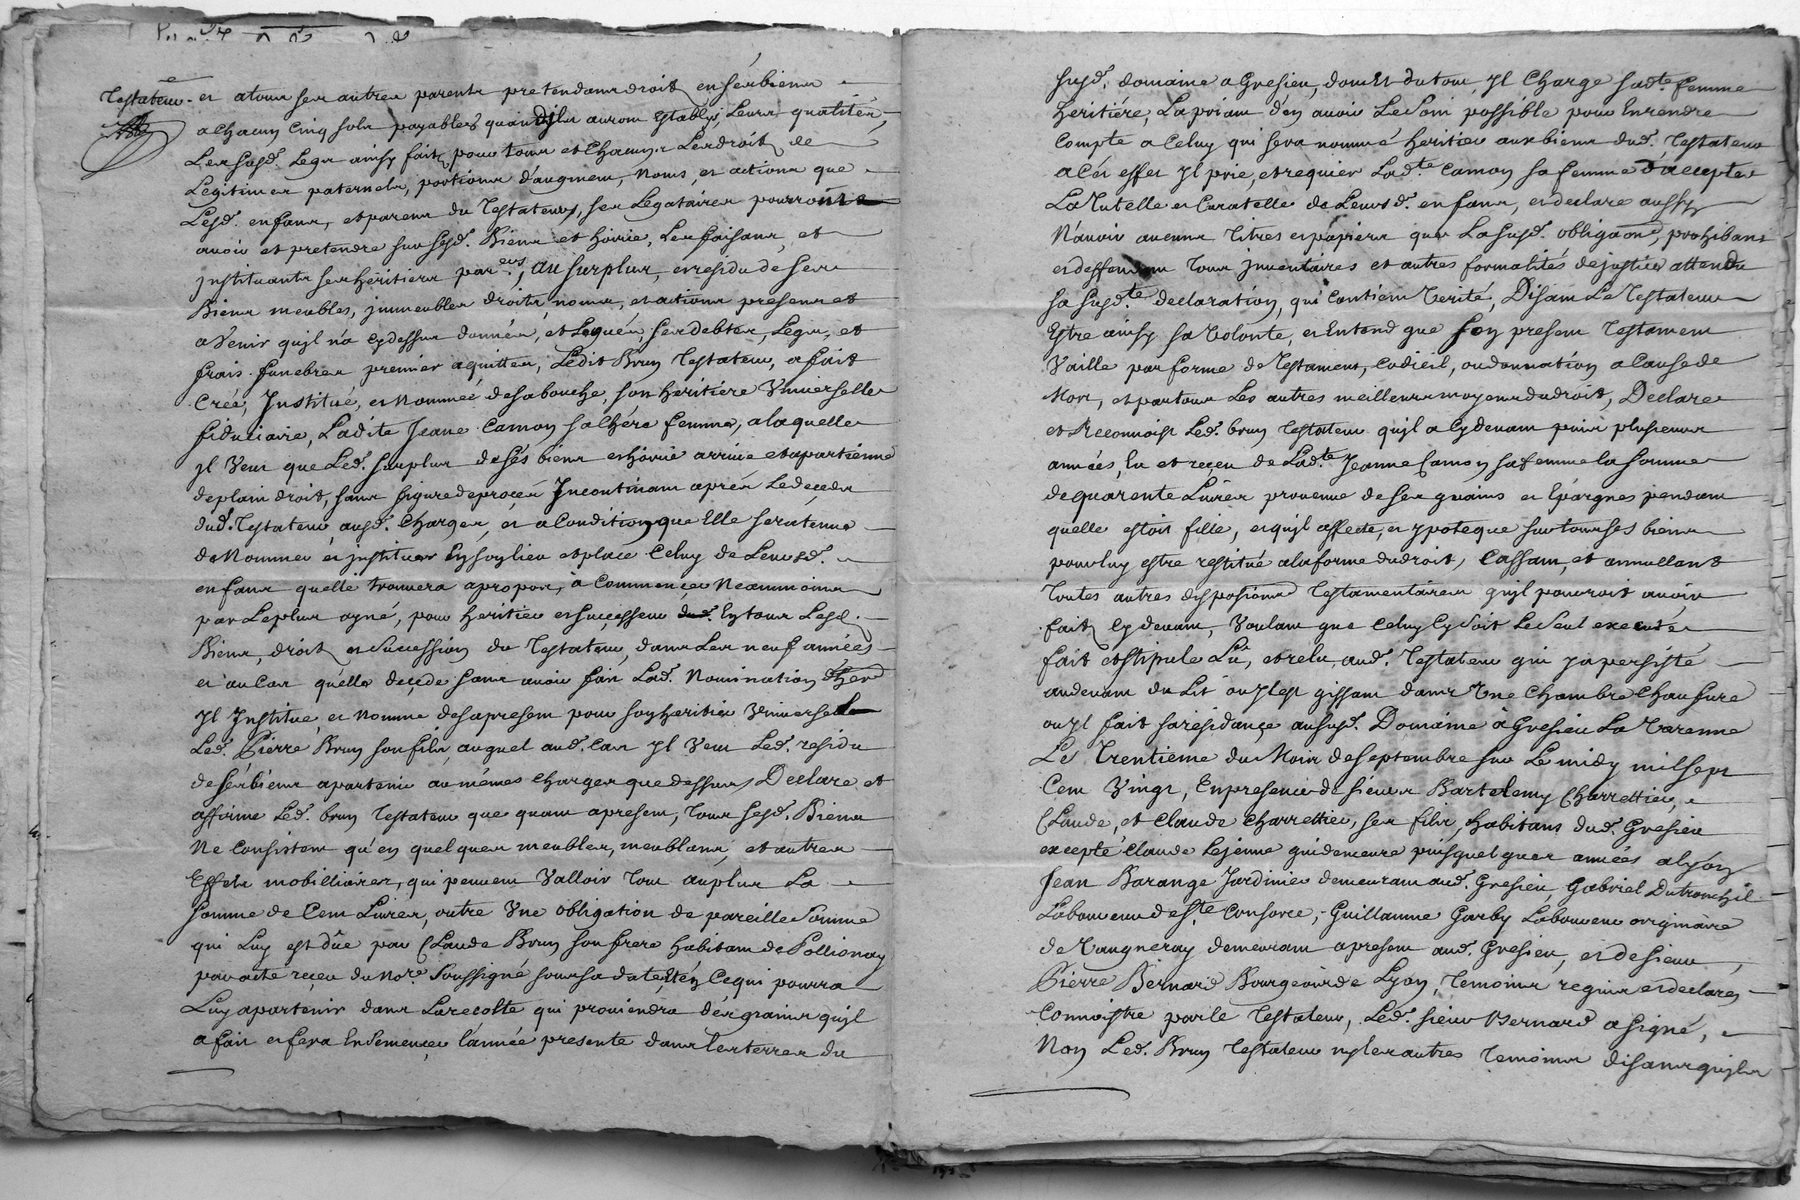 Testateur et a tous ses autres parents pretendans droit en ses biens
a chacun cinq sols payables quand ils auront establys Leurs qualités,
Les susd. Legs ainsy faits pour tous et chacuns Les droits de
Legitimes paternels, portions d'augment, noms, et actions que
Lesd. enfans, et parens du Testateur, ses Legataires pourroint
avoir et pretendre sur sesd. Biens et hoirie, Les faisans, et
jnstituants ses heritiers par.ers, Au surplus, et residu de ses
Biens meubles, jmmeubles droits, noms, et actions presens et
a Venir qu'jl n'a cy dessus donnés, et Legués, ses debtes, Legs, et
frais funebres premier aquittés, Ledit Brun Testateur, a fait
Créé, Jnstitué, et Nommée de sa bouche, son heritiére Vniverselle
fiduciaire, Ladite Jeane Camon sa Chére femme, a laquelle
jl Veut que Led. surplus de sés biens et hoirie arrive et apartienne
de plain droit, sans figure de procés Jncontinant aprés Le decéds
dud. Testateur ausd. Charges, et a Condition que Elle sera tenue
de Nommer et jnstituer En son lieu et place Celuy de Leursd.
enfans quelle trouvera a propos, à Commencer Neammoins
par Le plus ayné, pour heritier et successeur En tous Lesd.
Biens, droits et Succession du Testateur, dans Les neuf années
et au Cas quelle deçéde sans avoir fait Lad. Nomination
Jl Jnstitue, et Nomme des apresent pour son heritier Vniversel
Led. Pierre Brun son fils, auquel aud. Cas Jl Veut Led. residu
de sés biens apartenir au mémes Charges que dessus, Declare et
affirme Led. brun Testateur que quant apresent, Tous sesd. Biens
Ne Consistent qu'en quelques meubles, meublans, et autres
Effets mobilliaires, qui peuvent Valloir Tout au plus La
somme de Cent Livres, outre Vne obligation de pareille Somme
qui Luy est dûe par Claude Brun son frere habitant de Pollionay
par acte reçeu du No.re Soussigné sous sa datte, et En Ce qui pourra
Luy apartenir dans La recolte qui proviendra dés grains qu'jl
a fait et fera En Semences l'année presente dans les terres du
susd. domaine a Gresieu, dont Et du tout, Jl Charge sad.te femme
heritiére, La priant d'en avoir Le Soin possible pour En rendre
Compte a Celuy qui sera nommé heritier aux biens dud. Testateur
a Cét effet Jl prie, et requier Lad.te Camon sa femme d'accepter
La Tutelle et Curatelle de Leursd. enfans, et declare aussy
N'avoir aucuns Titres et papiers que La susd. obliga.on, prohibant
et deffendant Tous jnventaires et autres formalités de justice attendu
sa susd.te declaration, qui Contient Verité, Disant Le Testateur
Estre ainsy sa Volonte, et Entend que son present Testament
Vaille par forme de Testament, Codicil, ou donnation a Cause de
Mort, et par tous Les autres meilleurs moyens du droit, Declare
et Reconnoist Led. brun Testateur qu'jl a Cy devant puis plusieurs
années, Eu et reçeu de Lad.te Jeanne Camon sa femme la somme
de quarente Livres provenue de ses guains et Epargnes pendant
quelle estoit fille, et qu'jl affecte, et ypoteque sur tous ses biens
pour luy estre restitué a la forme du droit, Cassant, et annullant
Toutes autres disposions Testamentaires qu'jl pourroit avoir
faits Cy devant, Voulant que Celuy Cy soit Le Seul executé
fait et stipulé Lû, et relu, aud. Testateur qui y a persisté
au devant du Lit ou Jl est gissant dans Vne Chambre Chaufure
ou Jl fait sa résidance au susd. Domaine à Gresieu La Varenne
Le Trentieme du Mois de septembre sur Le midy mil sept
Cent Vingt, En presence de sieurs Bartelemy Charrettier,
Claude, et Claude Charrettier, ses fils, habitans dud. Gresieu
excepté Claude Le jeune qui demeure puis quelques années a lyon
Jean Barange Jardinier demeurant aud. Gresieu, Gabriel Dutronchil
Laboureur de S.te Consorce, Guillaume Garby Laboureur originaire
de Vaugneray demeurant apresent aud. Gresieu, et de sieur
Pierre Bernard Bourgeois de Lyon, Temoins requis et declarés
Connoistre par le Testateur, Led. sieur Bernard a signé,
Non Led. Brun Testateur ny les autres Temoins disans qu'jls